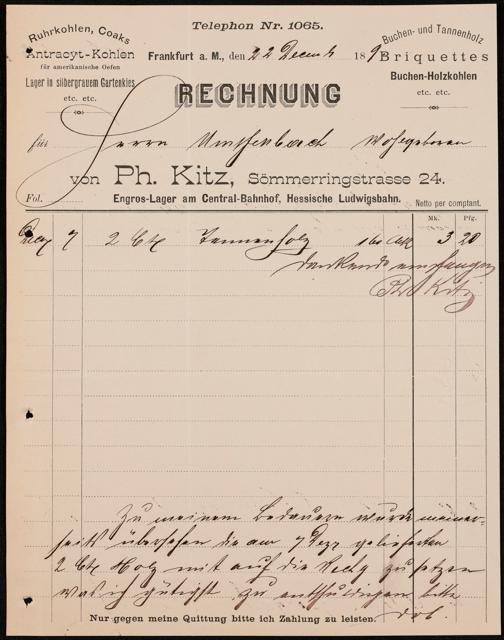 Telephon Nr. 1065.
Ruhrkohlen, Coaks
Antracyt-Kohlen
für amerikanische Oefen
Lager in silbergrauem Gartenkies
etc. etc.
Frankfurt a. M., den 22 Decemb 189
Buchen- und Tannenholz
Briquettes
Buchen-Holzkohlen
etc. etc.
RECHNUNG
für Herrn Umpfenbach Wohlgeboren
von Ph. Kitz, Sömmerringstrasse 24.
Fol. Engros-Lager am Central-Bahnhof, Hessische Ludwigsbahn.
Netto per comptant.
Mk. Pfg.
Dez 7 2 Ctr Tannenholz 160 3 20
dankend empfangen
Ph Kitz
Zu meinem Bedauern wurde meiner-
seits übersehen die am 7 Dez gelieferten
2 Ctr Holz mit auf die Rechg zu setzen
was ich gütigst zu entschuldigen bitte
Nur gegen meine Quittung bitte ich Zahlung zu leisten.